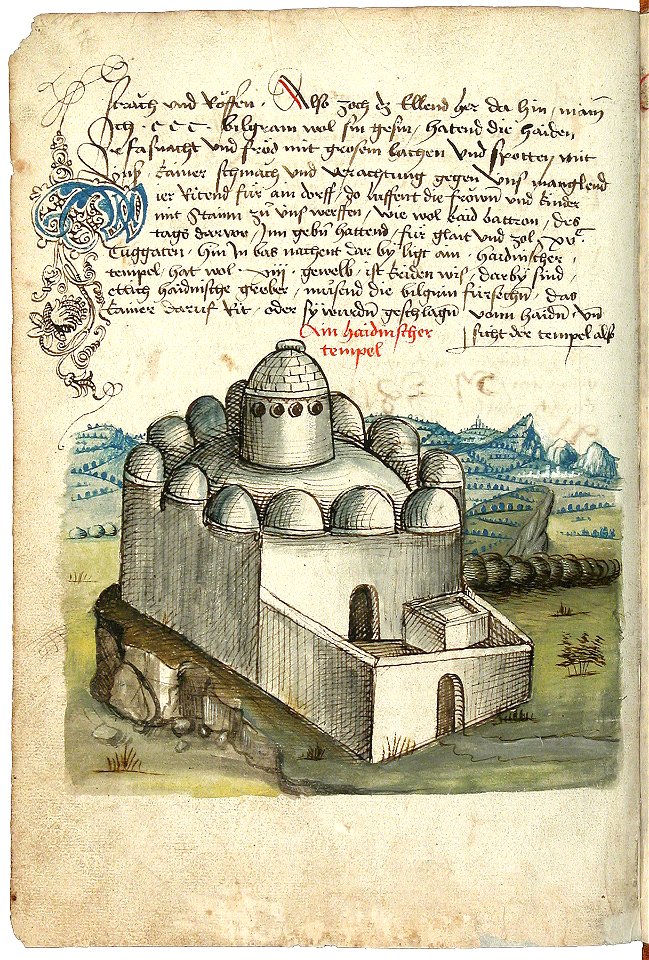 strauch und Röffen. Also zoch dz Ellend her da hin, main
ich. CCC. bilgram wol sin gesin, hatend die haiden
ir fasnacht und fröd mit grosem lachen und spotten mit
uns. Kamer schmach und verachtung gegen uns manglend
wir Ritend für ain dorff, do luffent die frowen und kinder
mit Stainn zu uns werffen, wie wol baid battron, des
tags darvor, Im gebn hattend, für glait und zol. XVC.
Tuggaten. Hin In bas nachent dar by ligt ain. haidnischer.
tempel, hat wol. viiij. gewelb, ist kriden wis, darby sind
ettlich haidnische greber, muesend die bilgrin fürsechn, das
kainer daruf Rit, oder sy wurdn geschlagn vonn haidn, und
Ain haidnischer
tempel
sicht der tempel also